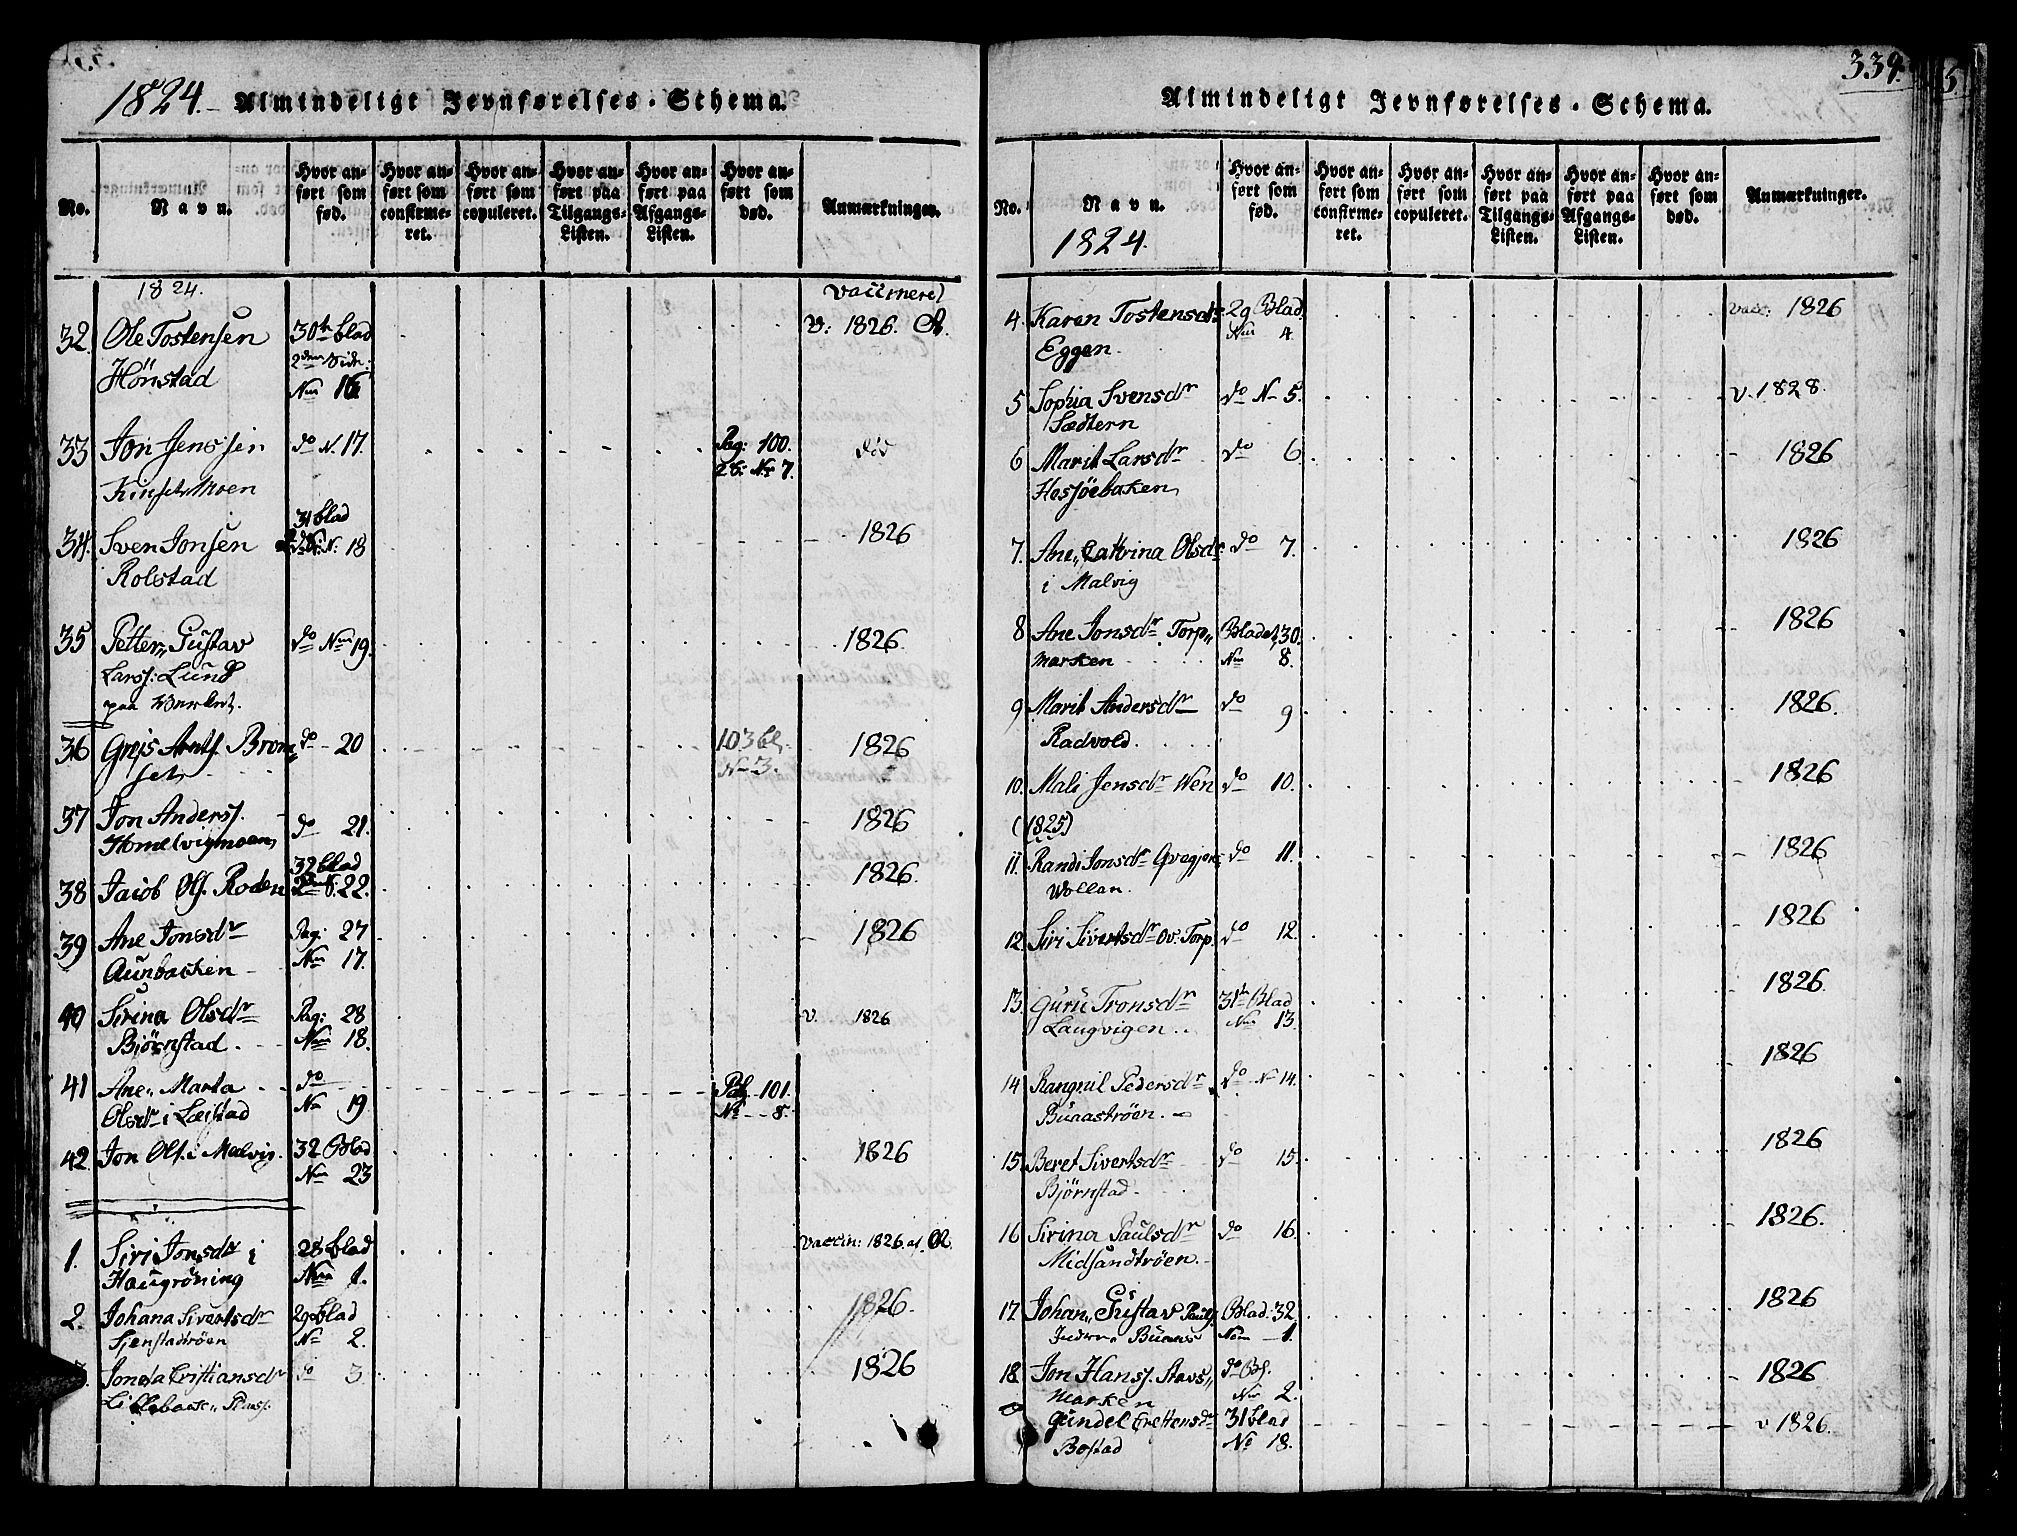 1824. Almindeligt Jevnførelses-Schema.
No. Navn. Hvor anført som fød. Hvor anført som confirmeret. Hvor anført som copuleret. Hvor anført paa Tilgangs-Listen. Hvor anført paa Afgangs-Listen. Hvor anført som død. Anmærkninger.
1824. Vaccineret
32. Ole Tostensen 30te blad V: 1826.
Hönstad 2den Side:
Num 16
33 Jon Jenssen do N. 17. Pag: 100. død
Moen 2 S: Nr 7.
31 blad
34. Sven Jonsen N. 18 1826
Rolstad
35 Petter Gustav do Num 19. 1826.
Larss: Lund
paa
36 Brom do 20 103 bl. 1826
set N 3.
37 Jon Anderss. do 21. 1826
Homelvigmoen
32 blad
38 Jacob Ols. Roden N. 22. 1826.
39 Ane Jonsdr Pag: 27 1826
Aunbacken Num 17.
40 Sirina Olsdr Pag: 28 v. 1826
Björnstad. Num 18.
41 Ane Marta do Pag 101.
Olsdr i Leistad No 19 No 8.
42. Jon Ols. i Malvig. 32 Blad 1826
Num 23
1. Siri Jonsdr i 28 blad vaccin: 1826. af
Haugröning Num 1.
2. Johana Sivertsdr 29 blad 1826.
Sjenstadtröen No 2.
3. Cristiansdr do 3. 1826
339.
Almindeligt Jevnførelses-Schema.
No. Navn. Hvor anført som fød. Hvor anført som confirmeret. Hvor anført som copuleret. Hvor anført paa Tilgangs-Listen. Hvor anført paa Afgangs-Listen. Hvor anført som død. Anmærkninger.
1824.
4. Karen Tostensdr 29 Blad vacc: 1826
Eggen. Num 4.
5 Sophia Svensdr do N 5. v. 1828.
Sædtern
6 Marit Larsdr do 6. 1826
Hesjöebaken
7. Ane Cathrina Olsdr do 7. 1826
i Malvig
8 Ane Jonsdr Torp Bladet 30. 1826
marken Num 8.
9 Marit Andersdr do 9 1826.
Radvold.
10. Mali Jensdr Wen do 10. 1826
(1825)
11. Randi Jonsdr do 11. 1826
Wollan.
12. Siri Sivertsdr Ov: Torp. do 12. 1826
13. Guru Tronsdr 31te Blad 1826.
Laugvigen Num 13.
14 Rangnil Pedersdr do N 14. 1826
Buaaströen.
15. Beret Sivertsdr do 15. 1826
Björnstad.
16 Sirina Paulsdr do 16. 1826.
Midsandtröen.
17. Johan Gustav Blad: 32. 1826
Num 1.
18. Jon Hanss. Stavs do Bl. 1826
marken Num 2.
Gundel 31 blad v 1826.
Bostad No 18.